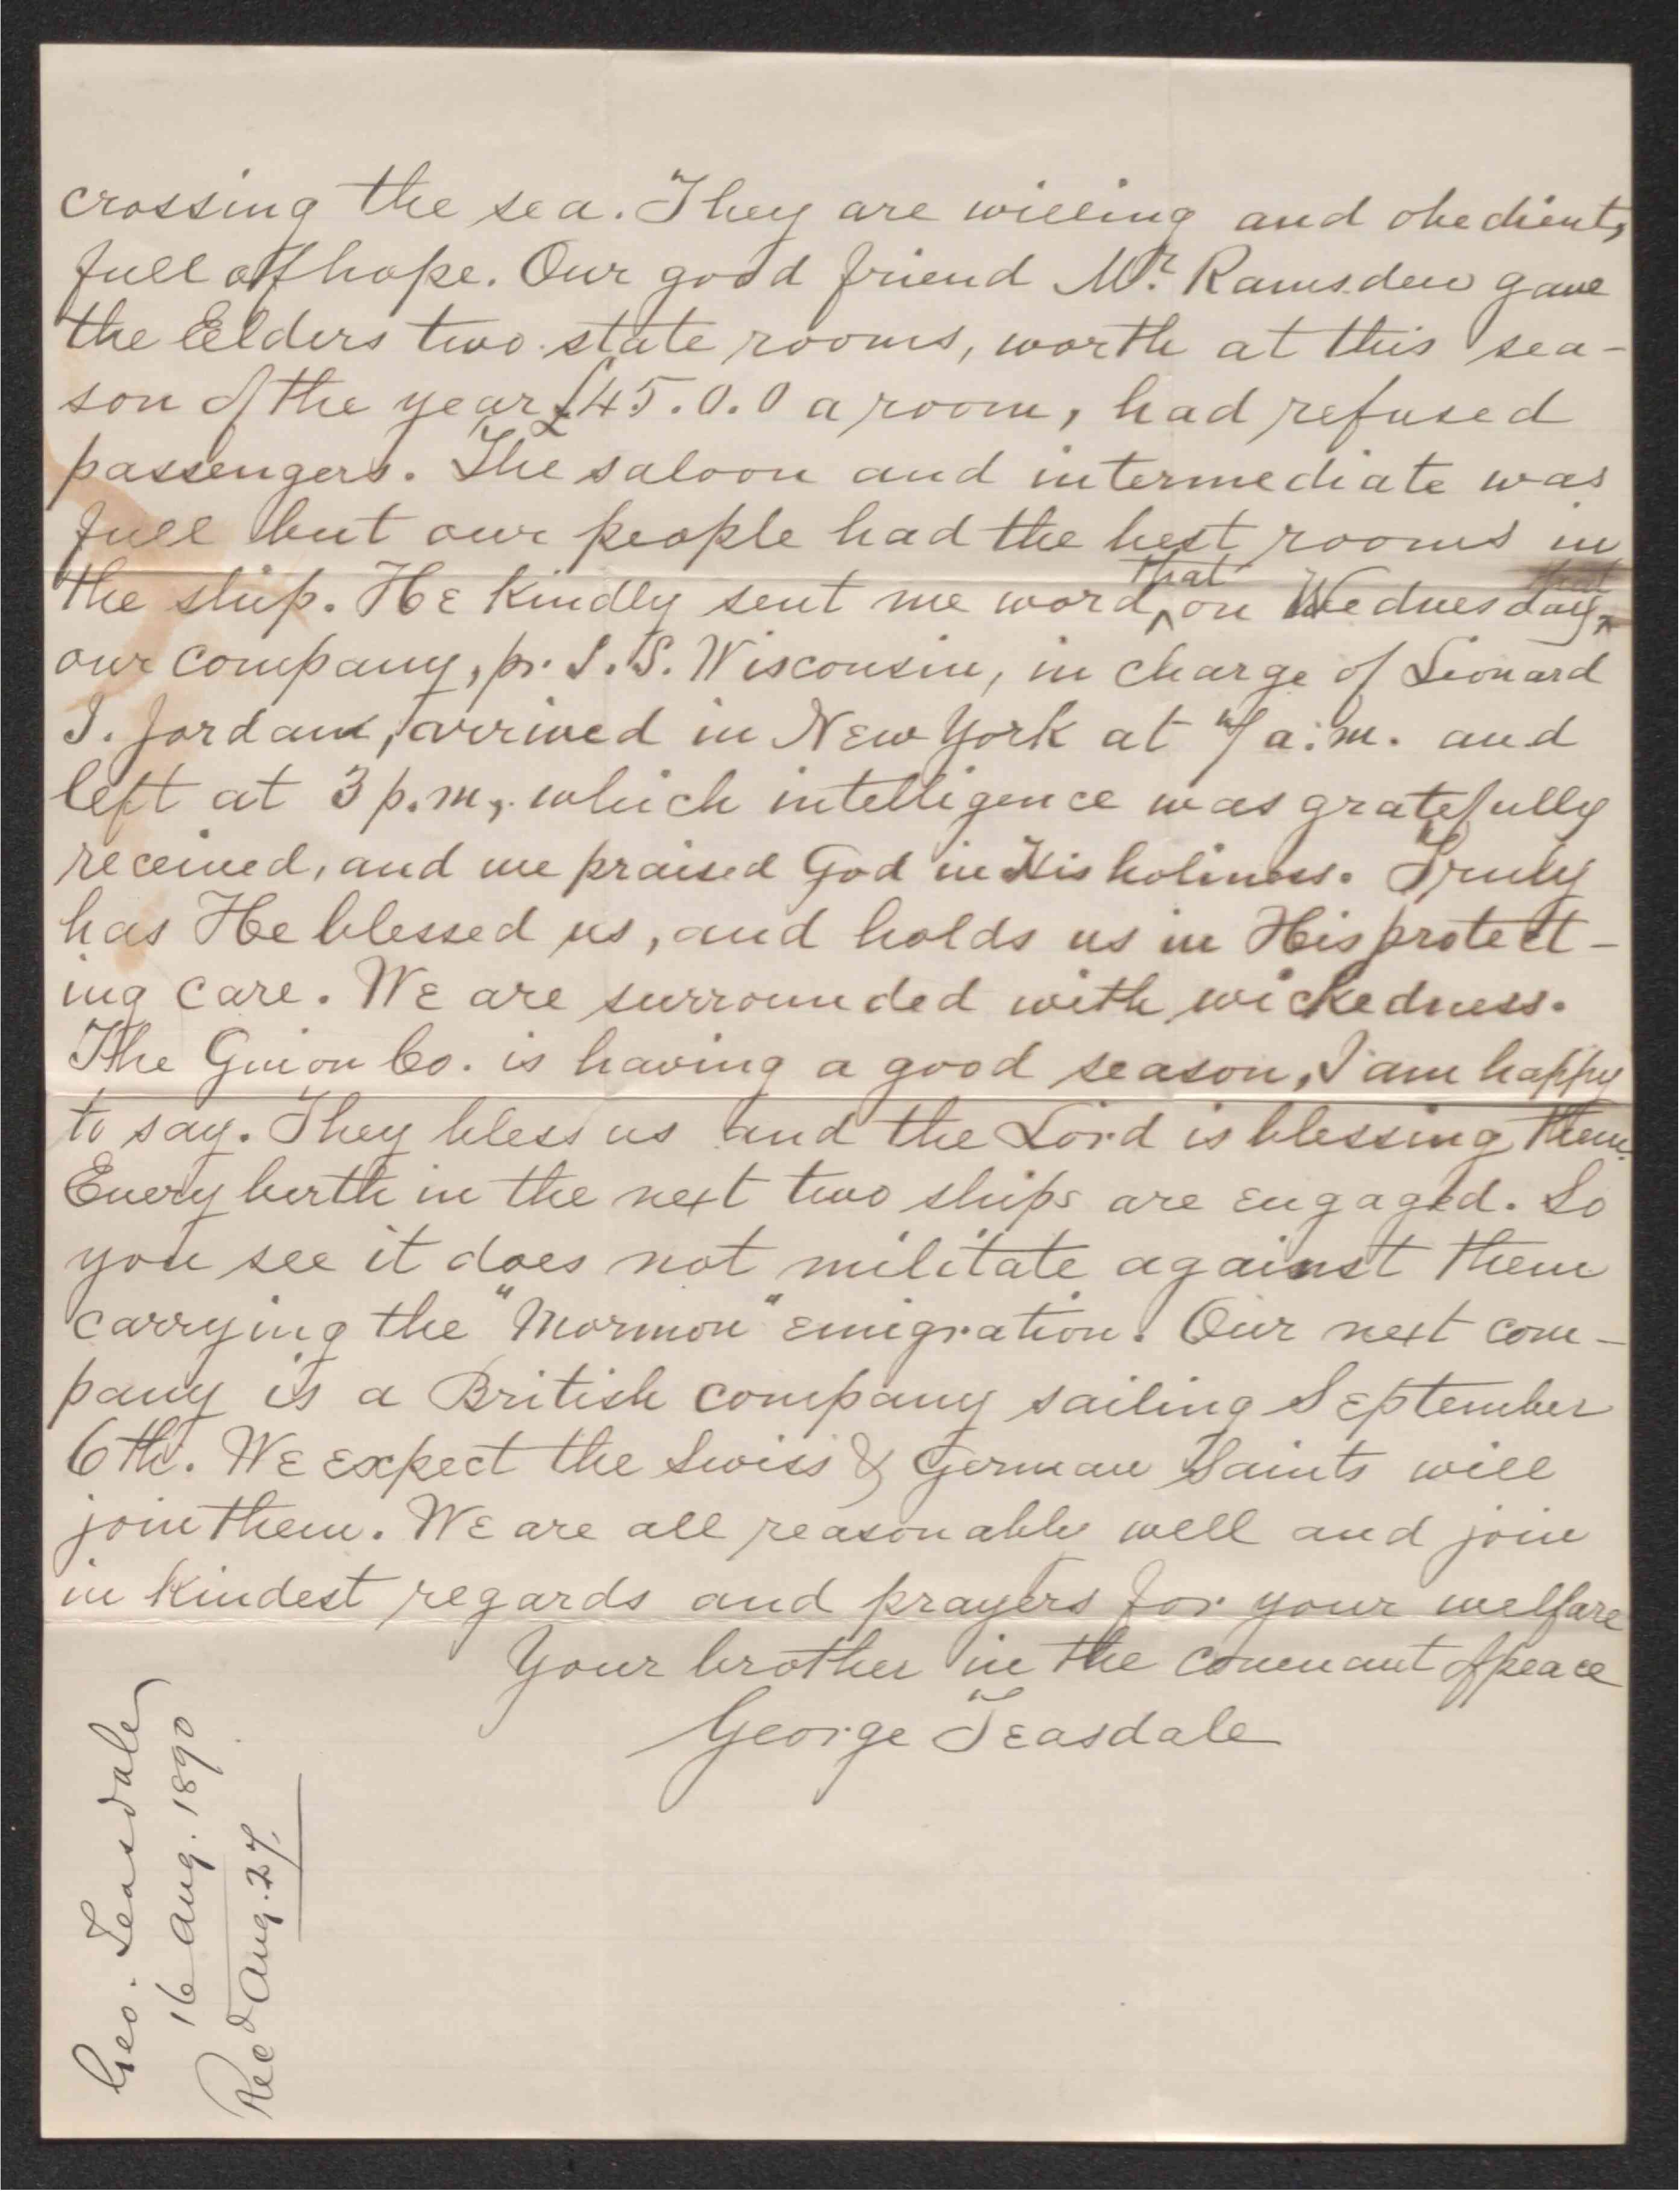 crossing the sea. They are willing and obedient,
full of hope. Our good friend Mr. Ramsden gave
the Elders two state rooms, worth at this sea-
son of the year £45.0.0 a room, had refused
passengers. The saloon and intermediate was
full but our people had the best rooms in
the ship. He kindly sent me word that on Wednesday,
our company, pr. S.S. Wisconsin, in charge of Leonard
J. Jordan, arrived in New York at 7 a.m. and
left at 3 p.m., which intelligence was gratefully
received, and we praised God in His holiness. Truly
has He blessed us, and holds us in His protect-
ing care. We are surrounded with wickedness.
The Guion Co. is having a good season, I am happy
to say. They bless us and the Lord is blessing them.
Every berth in the next two ships are engaged. So
you see it does not militate against them
carrying the "Mormon" emigration. Our next com-
pany is a British company sailing September
6th. We expect the Swiss & German Saints will
join them. We are all reasonable well and join
in kindest regards and prayers for your welfare
Your brother in the covenant of peace
George Teasdale
Geo. Teasdale
16 Aug. 1890
Recd Aug. 27.